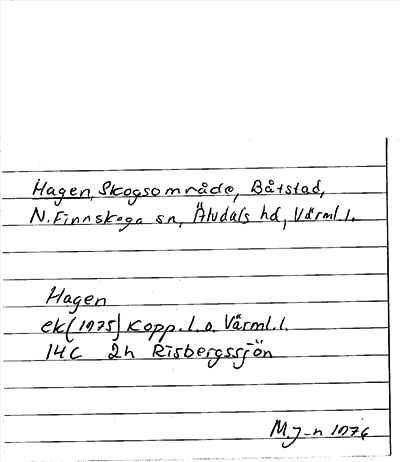 Hagen, Skogsområde, Båtstad,
N. Finnskoga sn, Älvdals hd, Värml. l.
Hagen
ek (1975) Kopp. l. o. Värml. l.
14C 2h Risbergssjön
M. J-n 1976